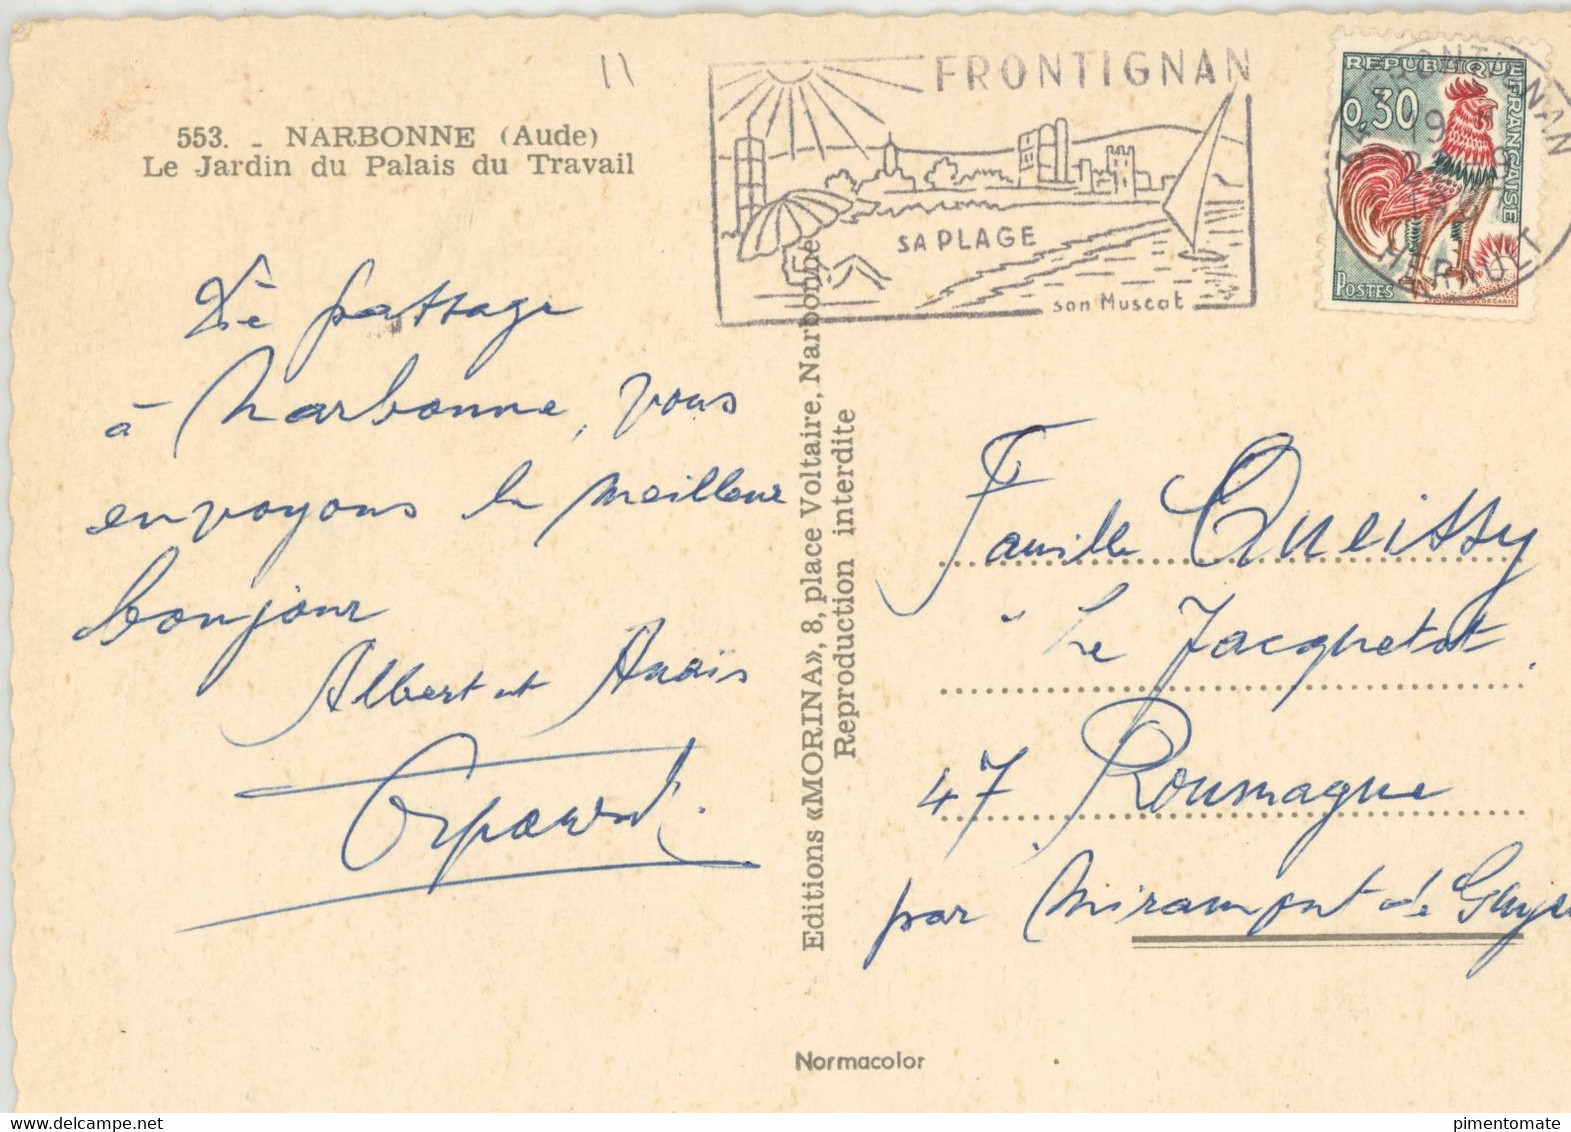 553. - NARBONNE (Aude)
Le Jardin du Palais du Travail
FRONTIGNAN
SA PLAGE
son Muscat
REPUBLIQUE FRANÇAISE
0,30
POSTES
HERAULT
passage
à Narbonne, vous
envoyons le meilleur
bonjour
Albert et Anaïs
Editions «MORINA», 8, place Voltaire, Narbonne
Reproduction interdite
Famille Queissy
Le Jacquetot
47 Roumagne
par Miramont de
Normacolor
pimentomate